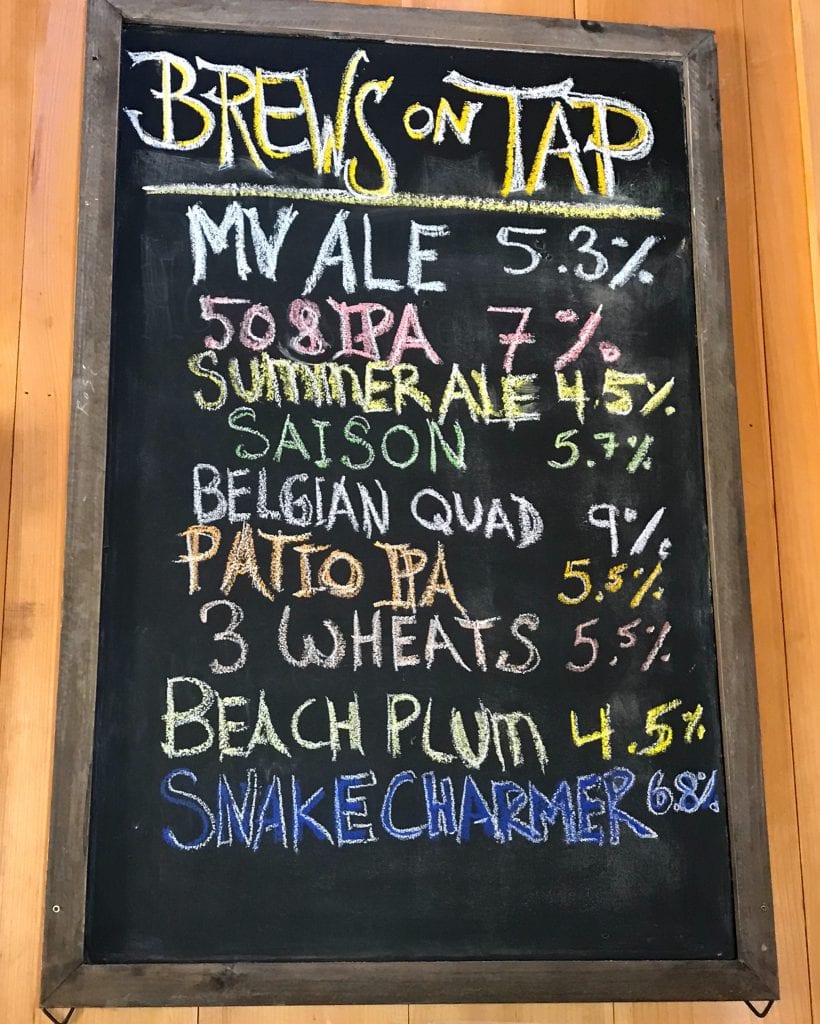 BREWS ON TAP
MV ALE 5.3%
508 IPA 7%
SUMMER ALE 4.5%
SAISON 5.7%
BELGIAN QUAD 9%
PATIO IPA 5.5%
3 WHEATS 5.5%
BEACH PLUM 4.5%
SNAKE CHARMER 6.8%